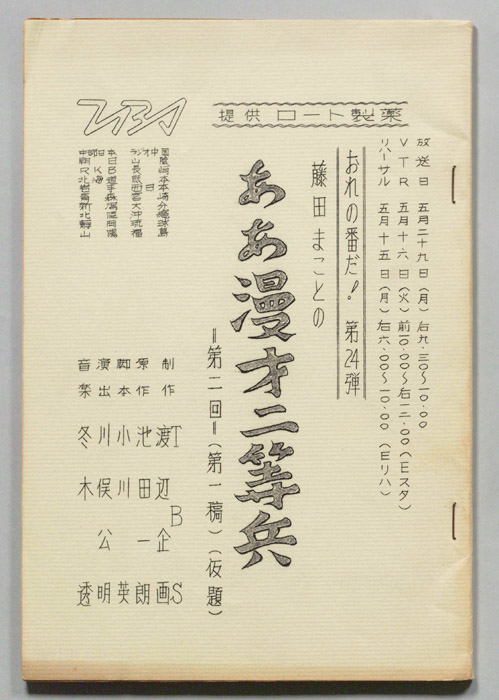 提供 ロート製薬
TBS
放送日 五月二十九日(月) 后九.三〇〜一〇.〇〇
VTR 五月十六日(火) 前一〇.〇〇〜后一二.〇〇(Eスタ)
リハーサル 五月十五日(月) 后六.〇〇〜一〇.〇〇(Eリハ)
おれの番だ! 第24弾
藤田まことの
ああ漫才二等兵
=第二回=(第一稿)(仮題)
制作 TBS
渡辺企画
原作 池田一朗
脚本 小川英
演出 川俣公明
音楽 冬木透